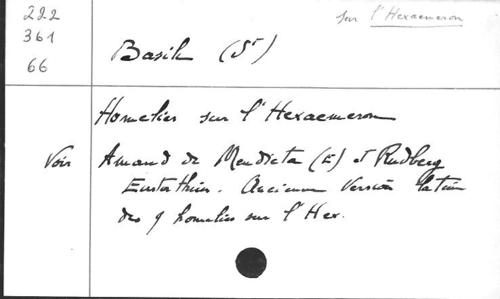 222
361
66
sur l'Hexaemeron
Basile (St)
Homelies sur l'Hexaemeron
Voir Amand de Mendieta (E) et Rudberg
Eustathius. Ancienne version latine
des 9 homelies sur l'Hex.